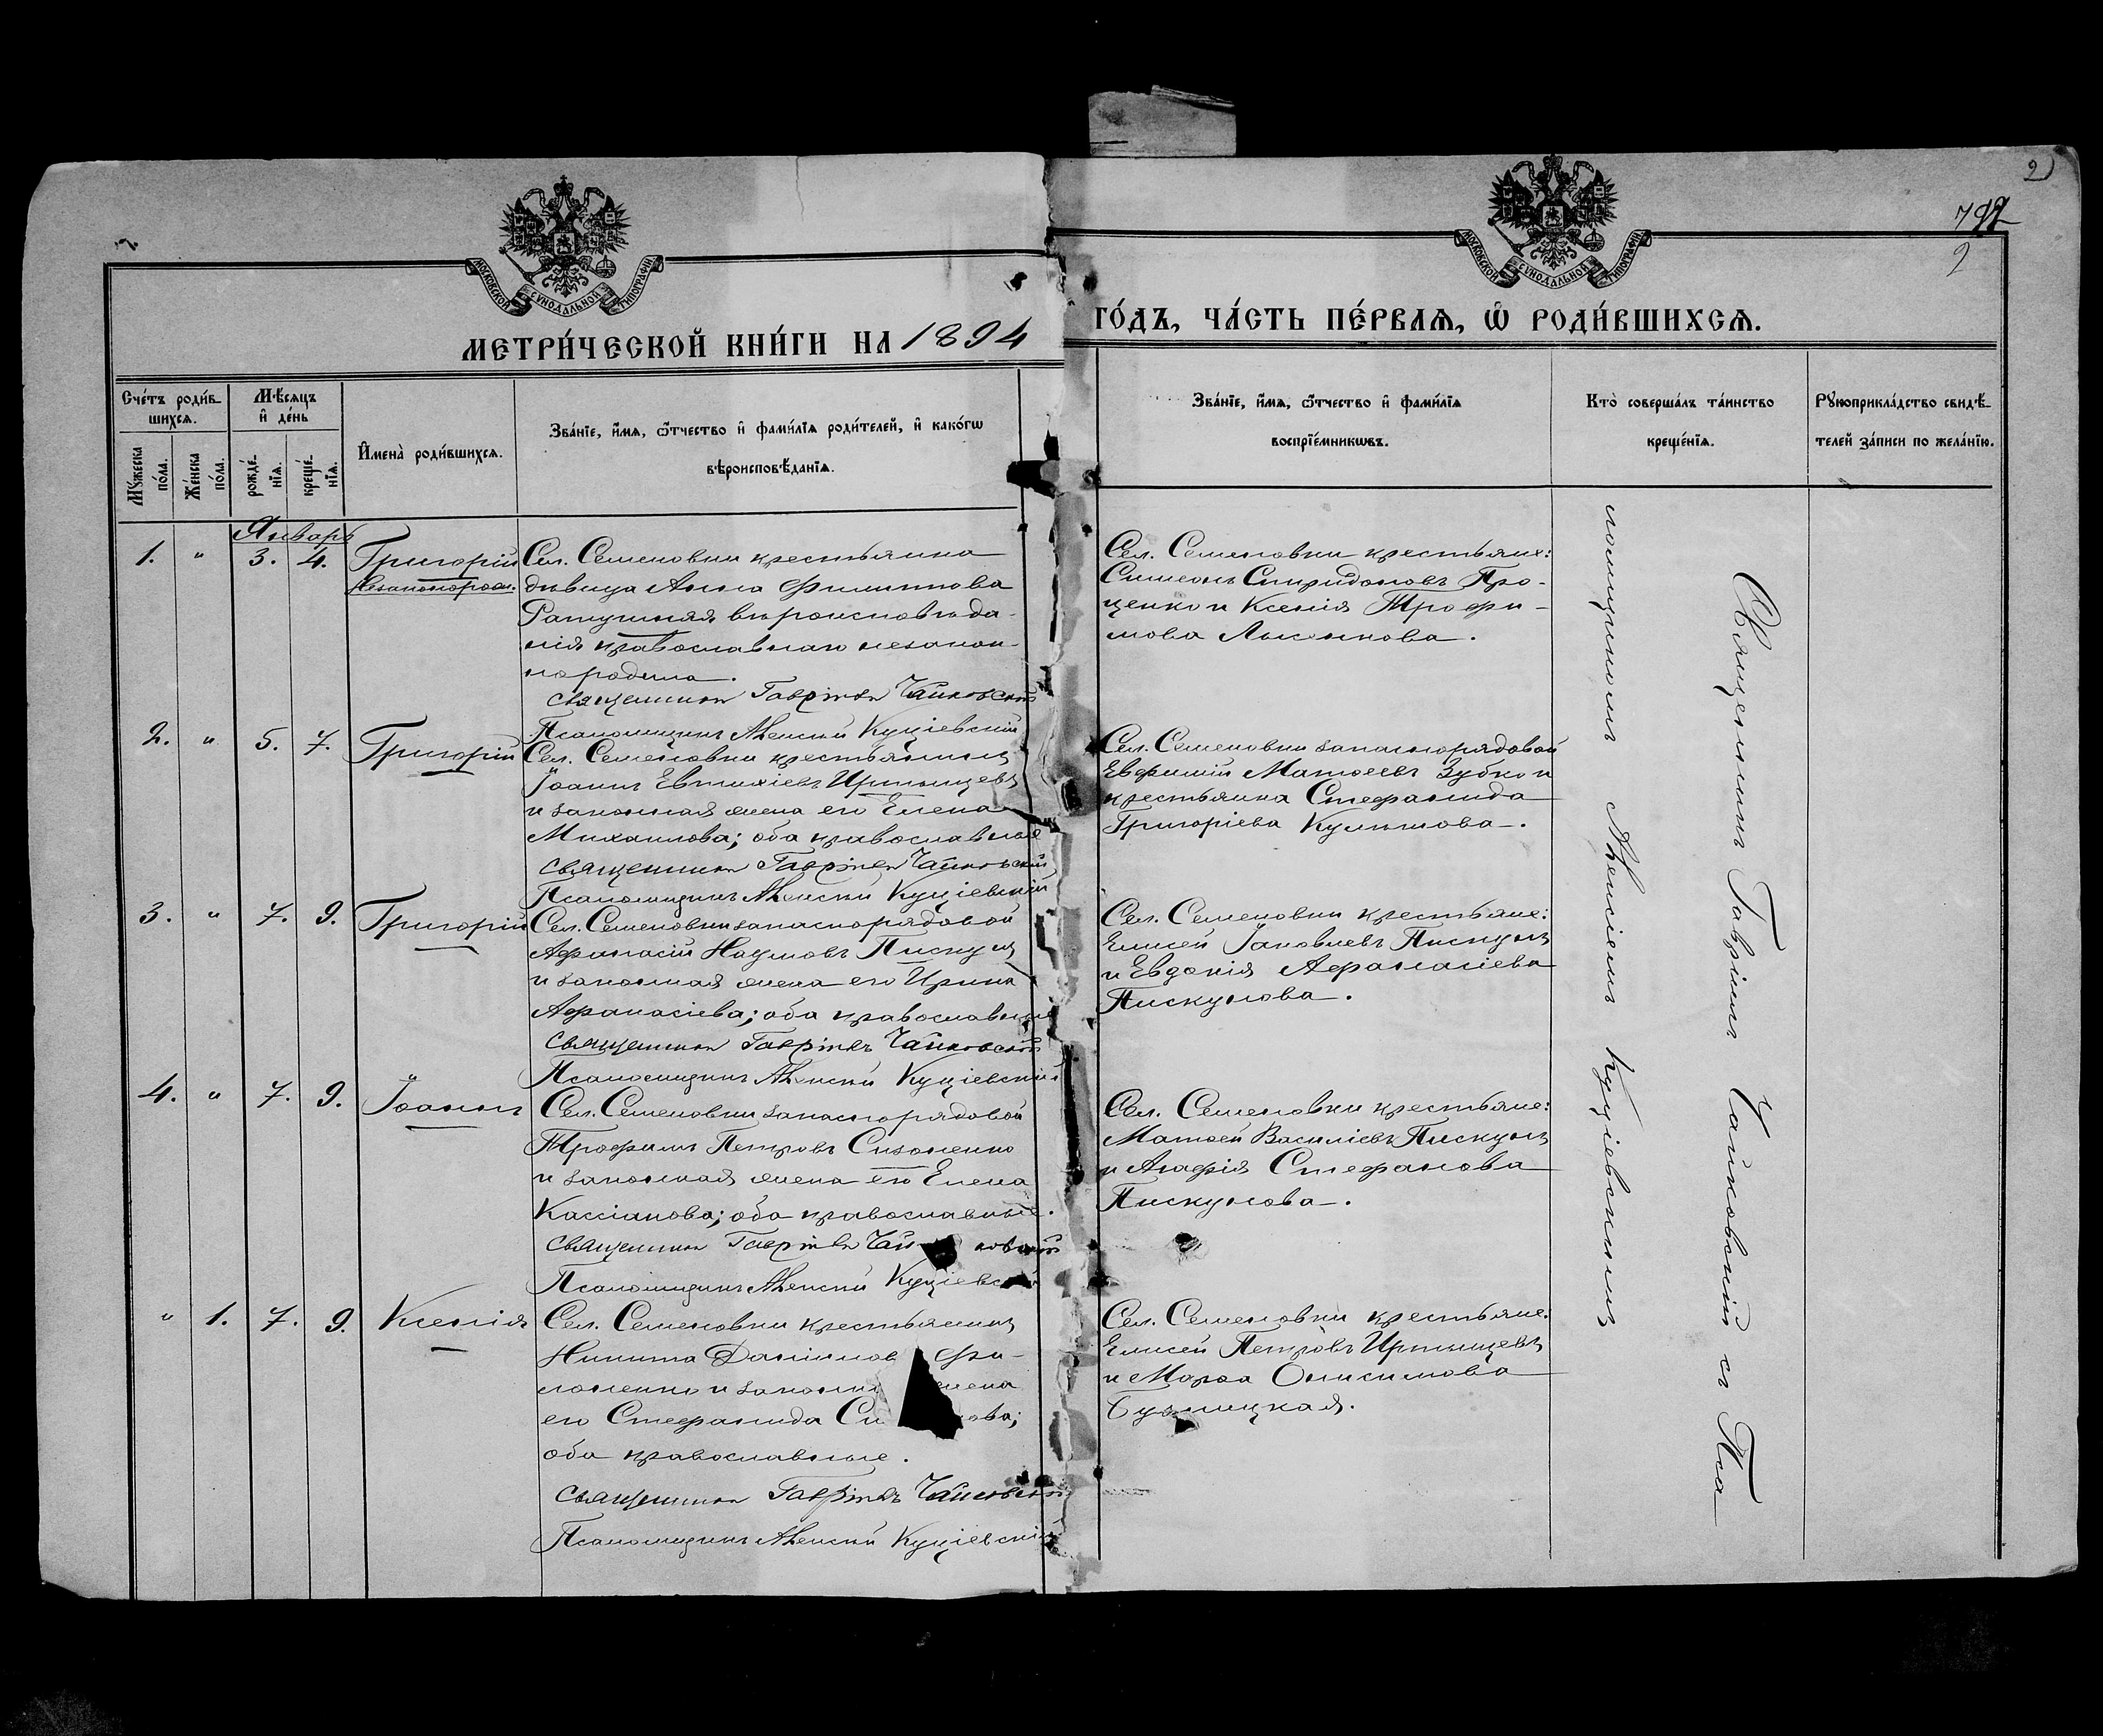 2
792
2
МОСКОВСКОЙ СѴНОДАЛЬНОЙ ТИПОГРАФІИ
МОСКОВСКОЙ СѴНОДАЛЬНОЙ ТИПОГРАФІИ
МЕТРИ́ЧЕСКОЙ КНИ́ГИ НА 1894
ГО́ДЪ, ЧА́СТЬ ПЕ́РВАѦ, Ѽ РОДИ́ВШИХСѦ.
Сче́тъ роди́в-
шихсѧ.
Мꙋ́жеска по́ла.
Же́нска по́ла.
Мѣ́сѧцъ
и҆ де́нь
рожде́-
нїѧ.
креще́-
нїѧ.
И҆мена̀ роди́вшихсѧ.
Зва́нїе, и҆́мѧ, ѻ҆́тчество и҆ фами́лїѧ роди́телей, и҆ како́гѡ
вѣроисповѣ́данїѧ.
Зва́нїе, и҆́мѧ, ѻ҆́тчество и҆ фами́лїѧ
воспрїе́мникѡвъ.
Кто̀ соверша́лъ та́инство
креще́нїѧ.
Рꙋкоприкла́дство свидѣ́-
телей за́писи по жела́нїю.
Январь
1. " 3. 4. Григорій
незаконорож.
Сел. Семеновки крестьянка
дѣвица Анна Филиппова
Ратушняя вѣроисповѣда-
нія православнаго незакон-
нородила.
Священникъ Гавріилъ Чайковскій
Псаломщикъ Алексѣй Куціевскій
Сел. Семеновки крестьяне:
Симеонъ Спиридоновъ Про-
ценко и Ксенія Трофи-
мова Лысенкова.
2. " 5. 7. Григорій
Сел. Семеновки крестьянинъ
Іоаннъ Евтихіевъ Иртыщевъ
и законная жена его Елена
Михаилова; оба православные
Священникъ Гавріилъ Чайковскій
Псаломщикъ Алексѣй Куціевскій
Сел. Семеновки запаснорядовой
Евфимій Матѳеевъ Зубко и
крестьянка Стефанида
Григоріева Кулишова.
3. " 7. 9. Григорій
Сел. Семеновки запаснорядовой
Афанасій Наумовъ Пискунъ
и законная жена его Ирина
Афанасіева; оба православные
Священникъ Гавріилъ Чайковскій
Псаломщикъ Алексѣй Куціевскій
Сел. Семеновки крестьяне:
Елисей Іаковлевъ Пискунъ
и Евдокія Афанасіева
Пискунова.
4. " 7. 9. Іоаннъ
Сел. Семеновки запаснорядовой
Трофимъ Петровъ Сизоненко
и законная жена его Елена
Кассіанова; оба православные.
Священникъ Гавріилъ Чайковскій
Псаломщикъ Алексѣй Куціевскій
Сел. Семеновки крестьяне:
Матѳей Василіевъ Пискунъ
и Агафія Стефанова
Пискунова.
" 1. 7. 9. Ксенія
Сел. Семеновки крестьянинъ
Никита Даниилов Фи-
лоненко и законн жена
его Стефанида Си ова;
оба православные.
Священникъ Гавріилъ Чайковскій
Псаломщикъ Алексѣй Куціевскій
Сел. Семеновки крестьяне:
Елисей Петровъ Иртыщевъ
и Марѳа Онисимова
Священникъ Гавріилъ Чайковскій съ Пса
ломщикомъ Алексіемъ Куціевскимъ